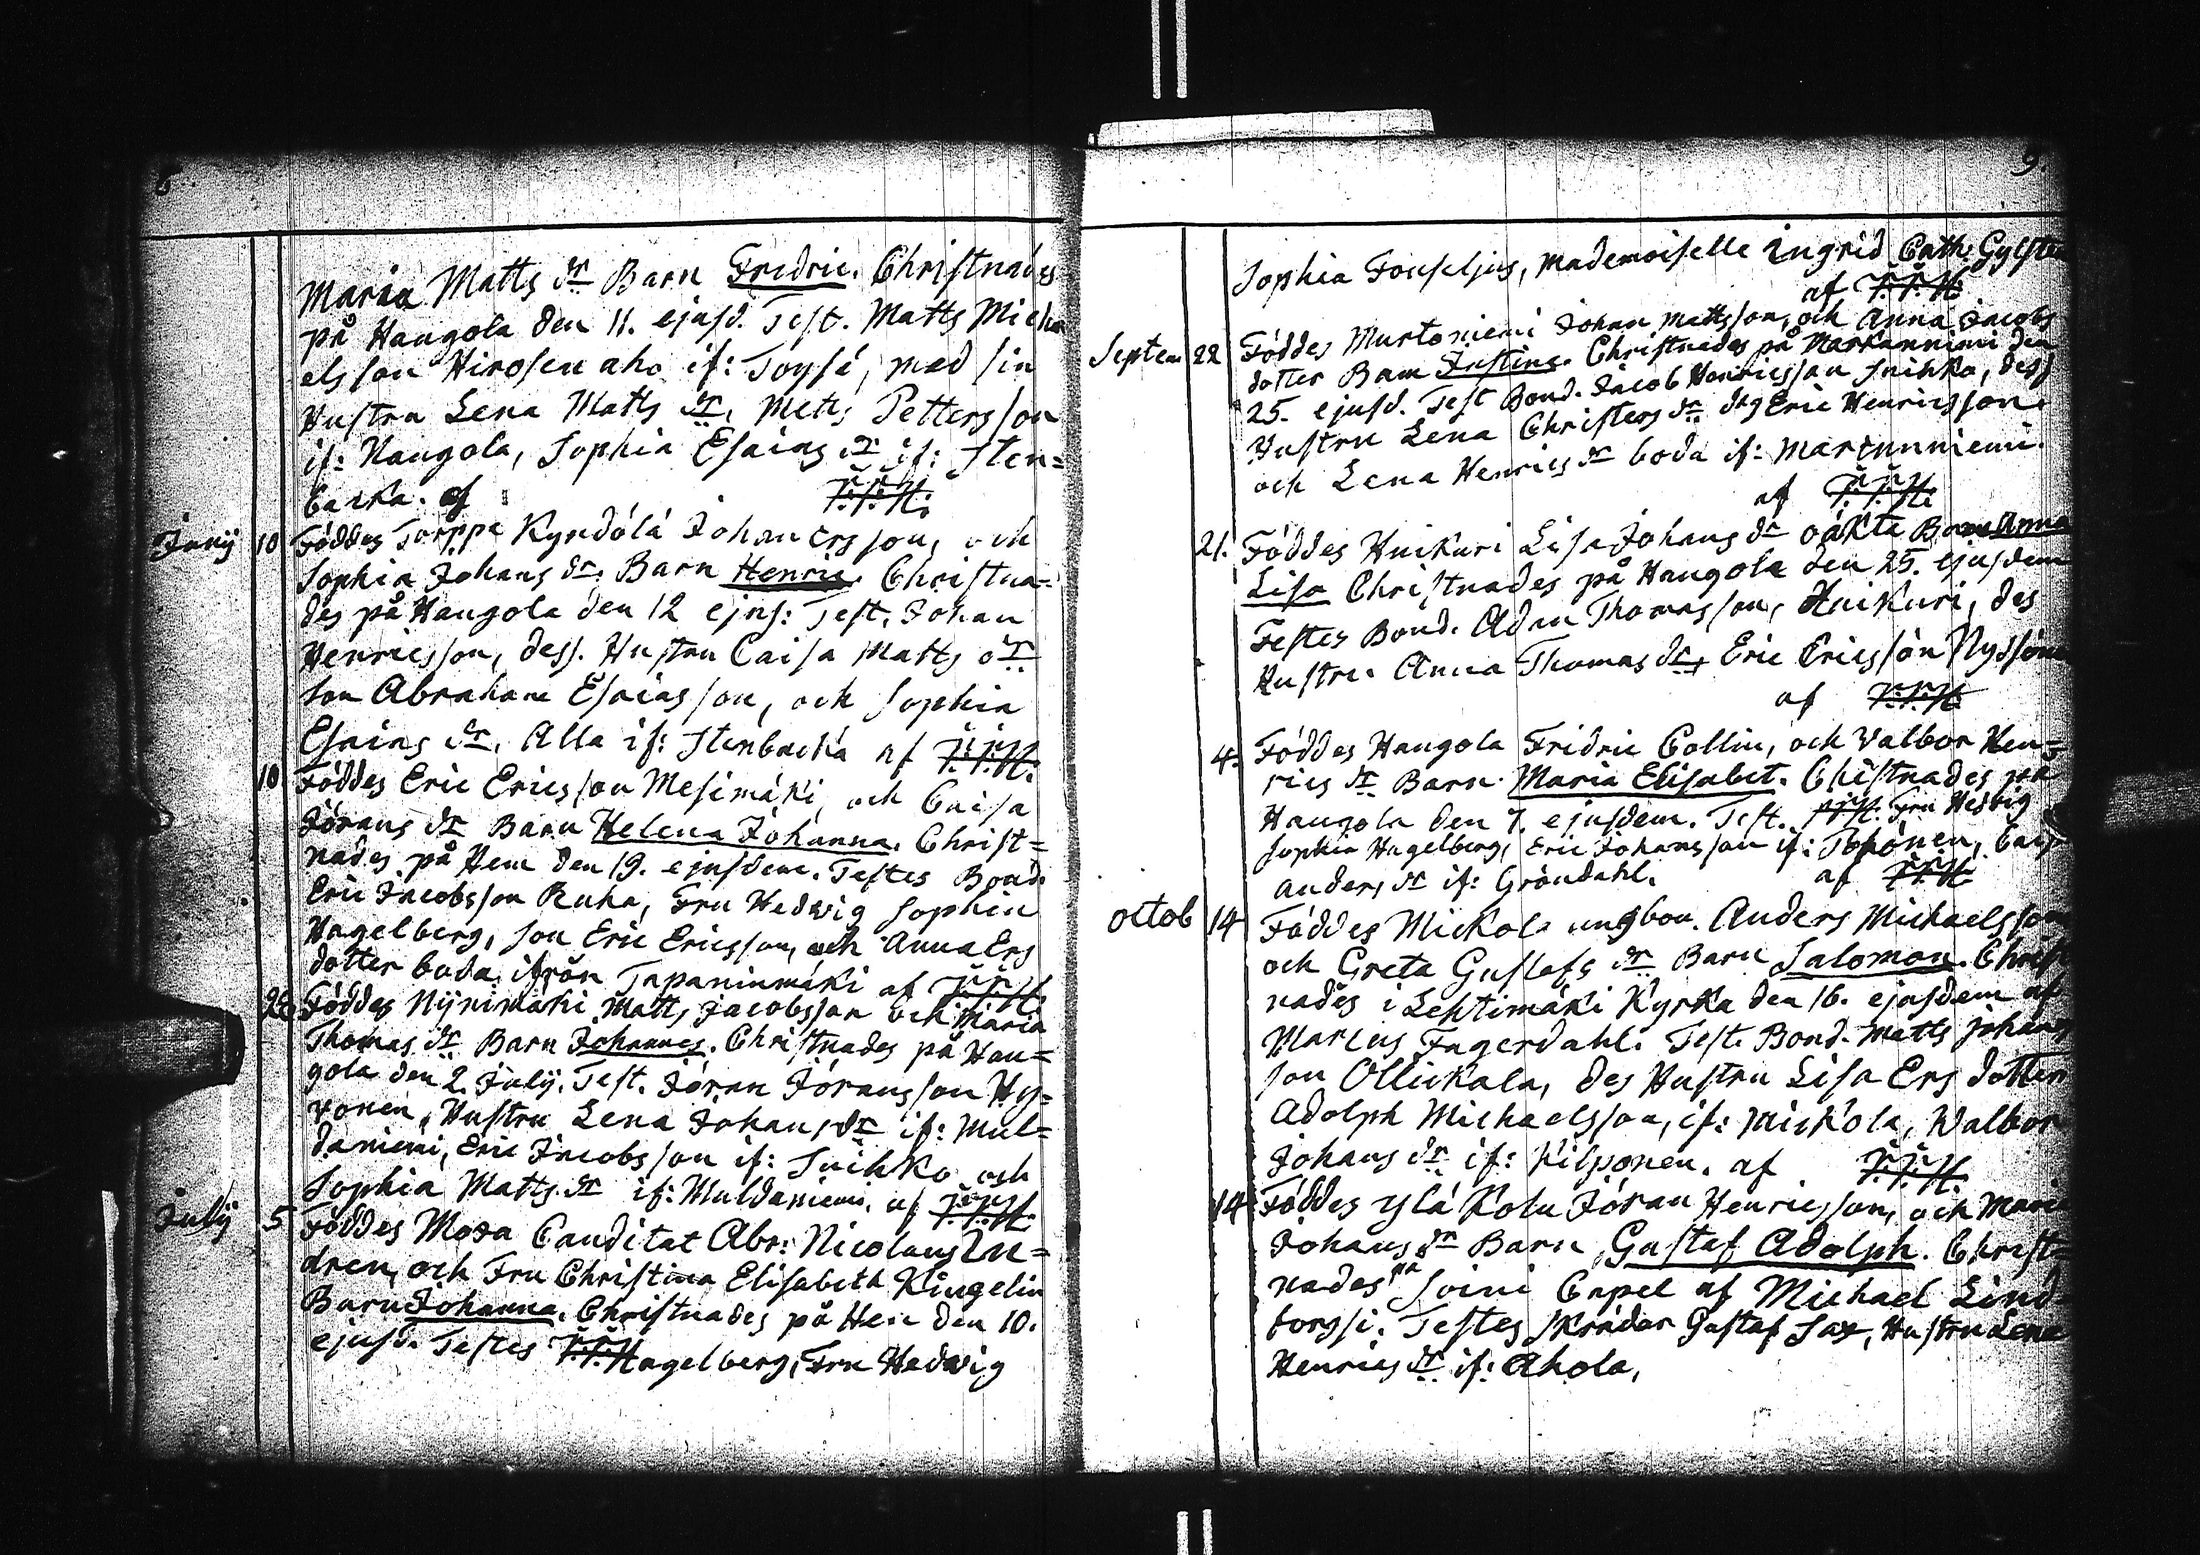 8.
Maria Matts dr Barn Fridric. Christnades
på Haugola den 11. ejusd. Test. Matts Micha
elsson Hirosen aho if: Töysä, med sin
Hustru Lena Matts dr, Matts Pettersson
if: Haugola, Sophia Esaias dr if: Sten=
backa. af F.F.H.
Junÿ 10 Föddes Torppa Kyndölä Johan Ersson, och
Sophia Johans dr. Barn Henric. Christna=
des på Haugola den 12 ejus: Test. Johan
Henricsson, dess. Hustru Caisa Matts dr
son Abraham Esaiasson, och Sophia
Esaias dr. Alla if: Stenbacka af F.F.H.
10 Föddes Eric Ericsson Mesimäki, och Caisa
Jörans dr Barn Helena Johanna. Christ=
nades på Hem den 19. ejusdem. Testes Bond.
Eric Jacobsson Ruha, Fru Hedvig Sophia
Hagelberg, son Eric Ericsson, och Anna Ers
dotter boda ifrån Tapaninmäki af F.F.H.
Föddes Nÿnimäki Matts Jacobsson och Maria
Thomas dr Barn Johannes. Christnades på Hau=
gola den 2. Julÿ. Test. Jöran Jöransson Hy=
vönen, Hustru Lena Johans dr if: Mul=
daniemi, Eric Jacobsson if: Suihko och
Sophia Matts dr if: Muldaniemi. af F.F.H.
Julÿ 5 Föddes Canditat Abr: Nicolaus In=
dren, och Fru Christina Elisabeth Kingelin
Barn Johanna. Christnades på Hem den 10.
ejusd. Testes F.F. Hagelberg, Fru Hedwig
9.
Sophia Mademoiselle Ingrid Cath:
af F.F.H.
Septem 22 Föddes Murtoniemi Johan Mattsson, och Anna Jacobs
dotter Barn Justina. Christnades på den
25. ejusd. Test Bond. Jacob Henricsson Suihko, dess
Hustru Lena Christers dr drg Eric Henricsson
och Lena Henrics dr boda if:
af F.F.H.
21. Föddes Huikuri Lisa Johans dr oäkta Barn Anna
Lisa Christnades på Haugola den 25. ejusdem
Testes Bond. Adam Thomasson, Huikuri, des
Hustru Anna Thomas dr, Eric Ericsson
af F.F.H.
4. Föddes Haugola Fridric Collin, och Valbor Hen=
rics dr Barn Maria Elisabet. Christnades på
Haugola den 7. ejusdem. Test. F.F.H. Fru Hedvig
Sophia Hagelberg, Eric Johansson if:
Anders dr if: Gröndahl. af F.F.H.
Octob 14 Föddes Mickola ungbon. Anders Michaelsson
och Greta Gustafs dr Barn Salomon. Christ
nades i Lehtimäki Kyrka den 16. ejusdem af
Marcus Fagerdahl. Test. Bond. Matts Johans
son Ollickala, des Hustru Lisa Ers dotter
Adolph Michaelsson, if: Mickola, Walbor
Johans dr if: Kilponen. af F.F.H.
14 Föddes Ylä Kolu Jöran Henricsson, och Maria
Johans dr Barn Gustaf Adolph. Christ=
nades på Soini Capel af Michael Lind=
forssi. Testes Skräddar Gustaf Sax, Hustru Lena
Henrics dr if: Ahola,